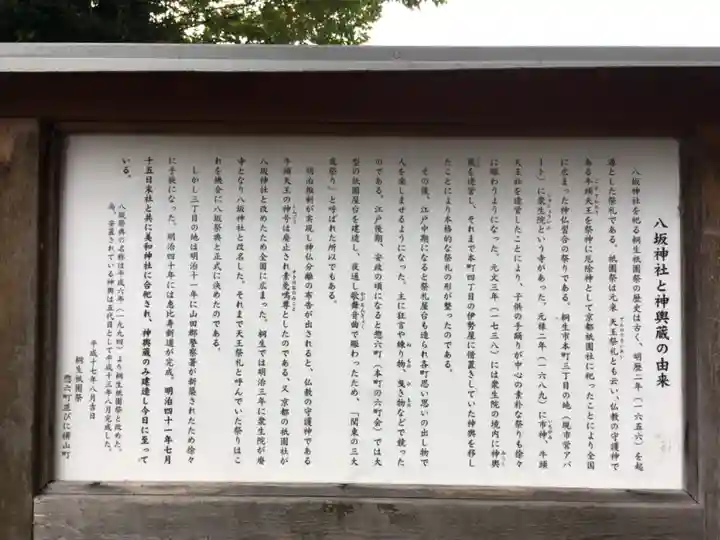 八坂神社と神輿蔵の由来
八坂神社を祀る桐生祇園祭の歴史は古く、明暦二年(一六五六)を起
源とした祭礼である。祇園祭は元来、天王祭礼とも云い、仏教の守護神で
ある牛頭天王を祭神に厄除神として京都祇園社に祀ったことにより全国
に広まった神仏習合の祭りである。桐生市本町三丁目の地(現市営アパ
ート)に衆生院という寺があった。元禄二年(一六八九)に市神、牛頭
天王社を造営したことにより、子供の手踊りが中心の素朴な祭りも徐々
に賑わうようになった。元文三年(一七三八)には衆生院の境内に神輿
蔵を造営し、それまで本町四丁目の伊勢屋に借置きしていた神輿を移し
たことにより本格的な祭礼の形が整ったのである。
その後、江戸中期になると祭礼屋台も造られ各町思い思いの出し物で
人を楽しませるようになった。主に狂言や練り物、曳き物などで競った
のである。江戸後期、安政の頃になると惣六町(本町の六町会)では大
型の祇園屋台を建造し、夜通し歌舞音曲で賑わったため、「関東の三大
夜祭り」と呼ばれた所以でもある。
明治維新が実現し神仏分離の布告が出されると、仏教の守護神である
牛頭天王の神号は廃止され素戔嗚尊としたのである。又、京都の祇園社が
八坂神社と改めたため全国に広まった。桐生では明治三年に衆生院が廃
寺となり八坂神社と改名した。それまで天王祭礼と呼んでいた祭りはこ
れを機会に八坂祭典と正式に決めたのである。
しかし三丁目の地は明治十一年に山田郡警察署が新築されたため徐々
に手狭になった。明治四十年には恵比寿新道が完成。明治四十一年七月
十五日末社と共に美和神社に合祀され、神輿蔵のみ建造し今日に至って
いる。
八坂祭典の名称は平成六年(一九九四)より桐生祇園祭と改めた。
尚、安置されている神輿は五代目として平成十三年八月完成した。
平成十七年八月吉日
桐生祇園祭
惣六町並びに横山町